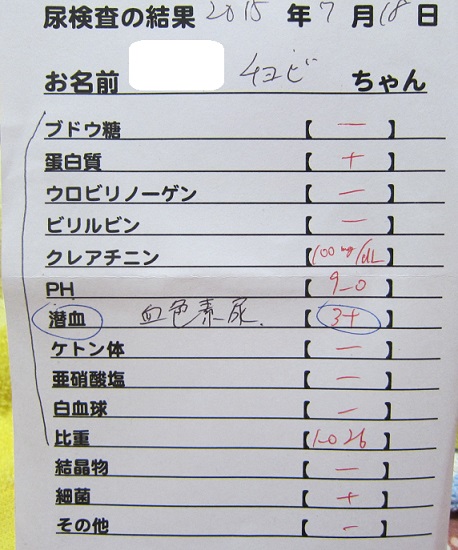 尿検査の結果 2015 年 7 月 18 日
お名前 チョビ ちゃん
ブドウ糖 【 － 】
蛋白質 【 + 】
ウロビリノーゲン 【 － 】
ビリルビン 【 － 】
クレアチニン 【 100mg/dL 】
PH 【 9.0 】
潜血 血色素尿. 【 3+ 】
ケトン体 【 － 】
亜硝酸塩 【 － 】
白血球 【 － 】
比重 【 1.026 】
結晶物 【 － 】
細菌 【 + 】
その他 【 － 】